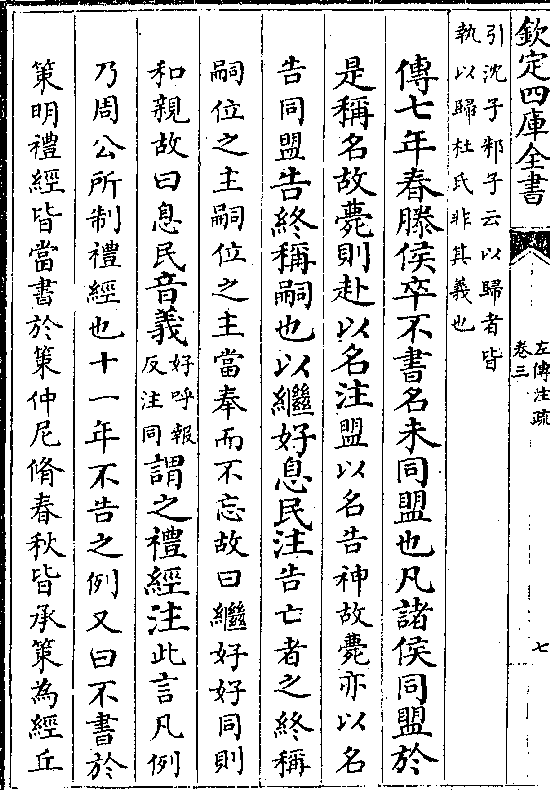 欽定四庫全書
左傳注疏
卷三
七
引沈子邾子云以歸者皆
執以歸杜氏非其義也
傳七年春滕侯卒不書名未同盟也凡諸侯同盟於
是稱名故薨則赴以名注盟以名告神故薨亦以名
告同盟告終稱嗣也以繼好息民注告亡者之終稱
嗣位之主嗣位之主當奉而不忘故曰繼好好同則
和親故曰息民音義好呼報
反注同謂之禮經注此言凡例
乃周公所制禮經也十一年不告之例又曰不書於
策明禮經皆當書於策仲尼脩春秋皆承策為經丘